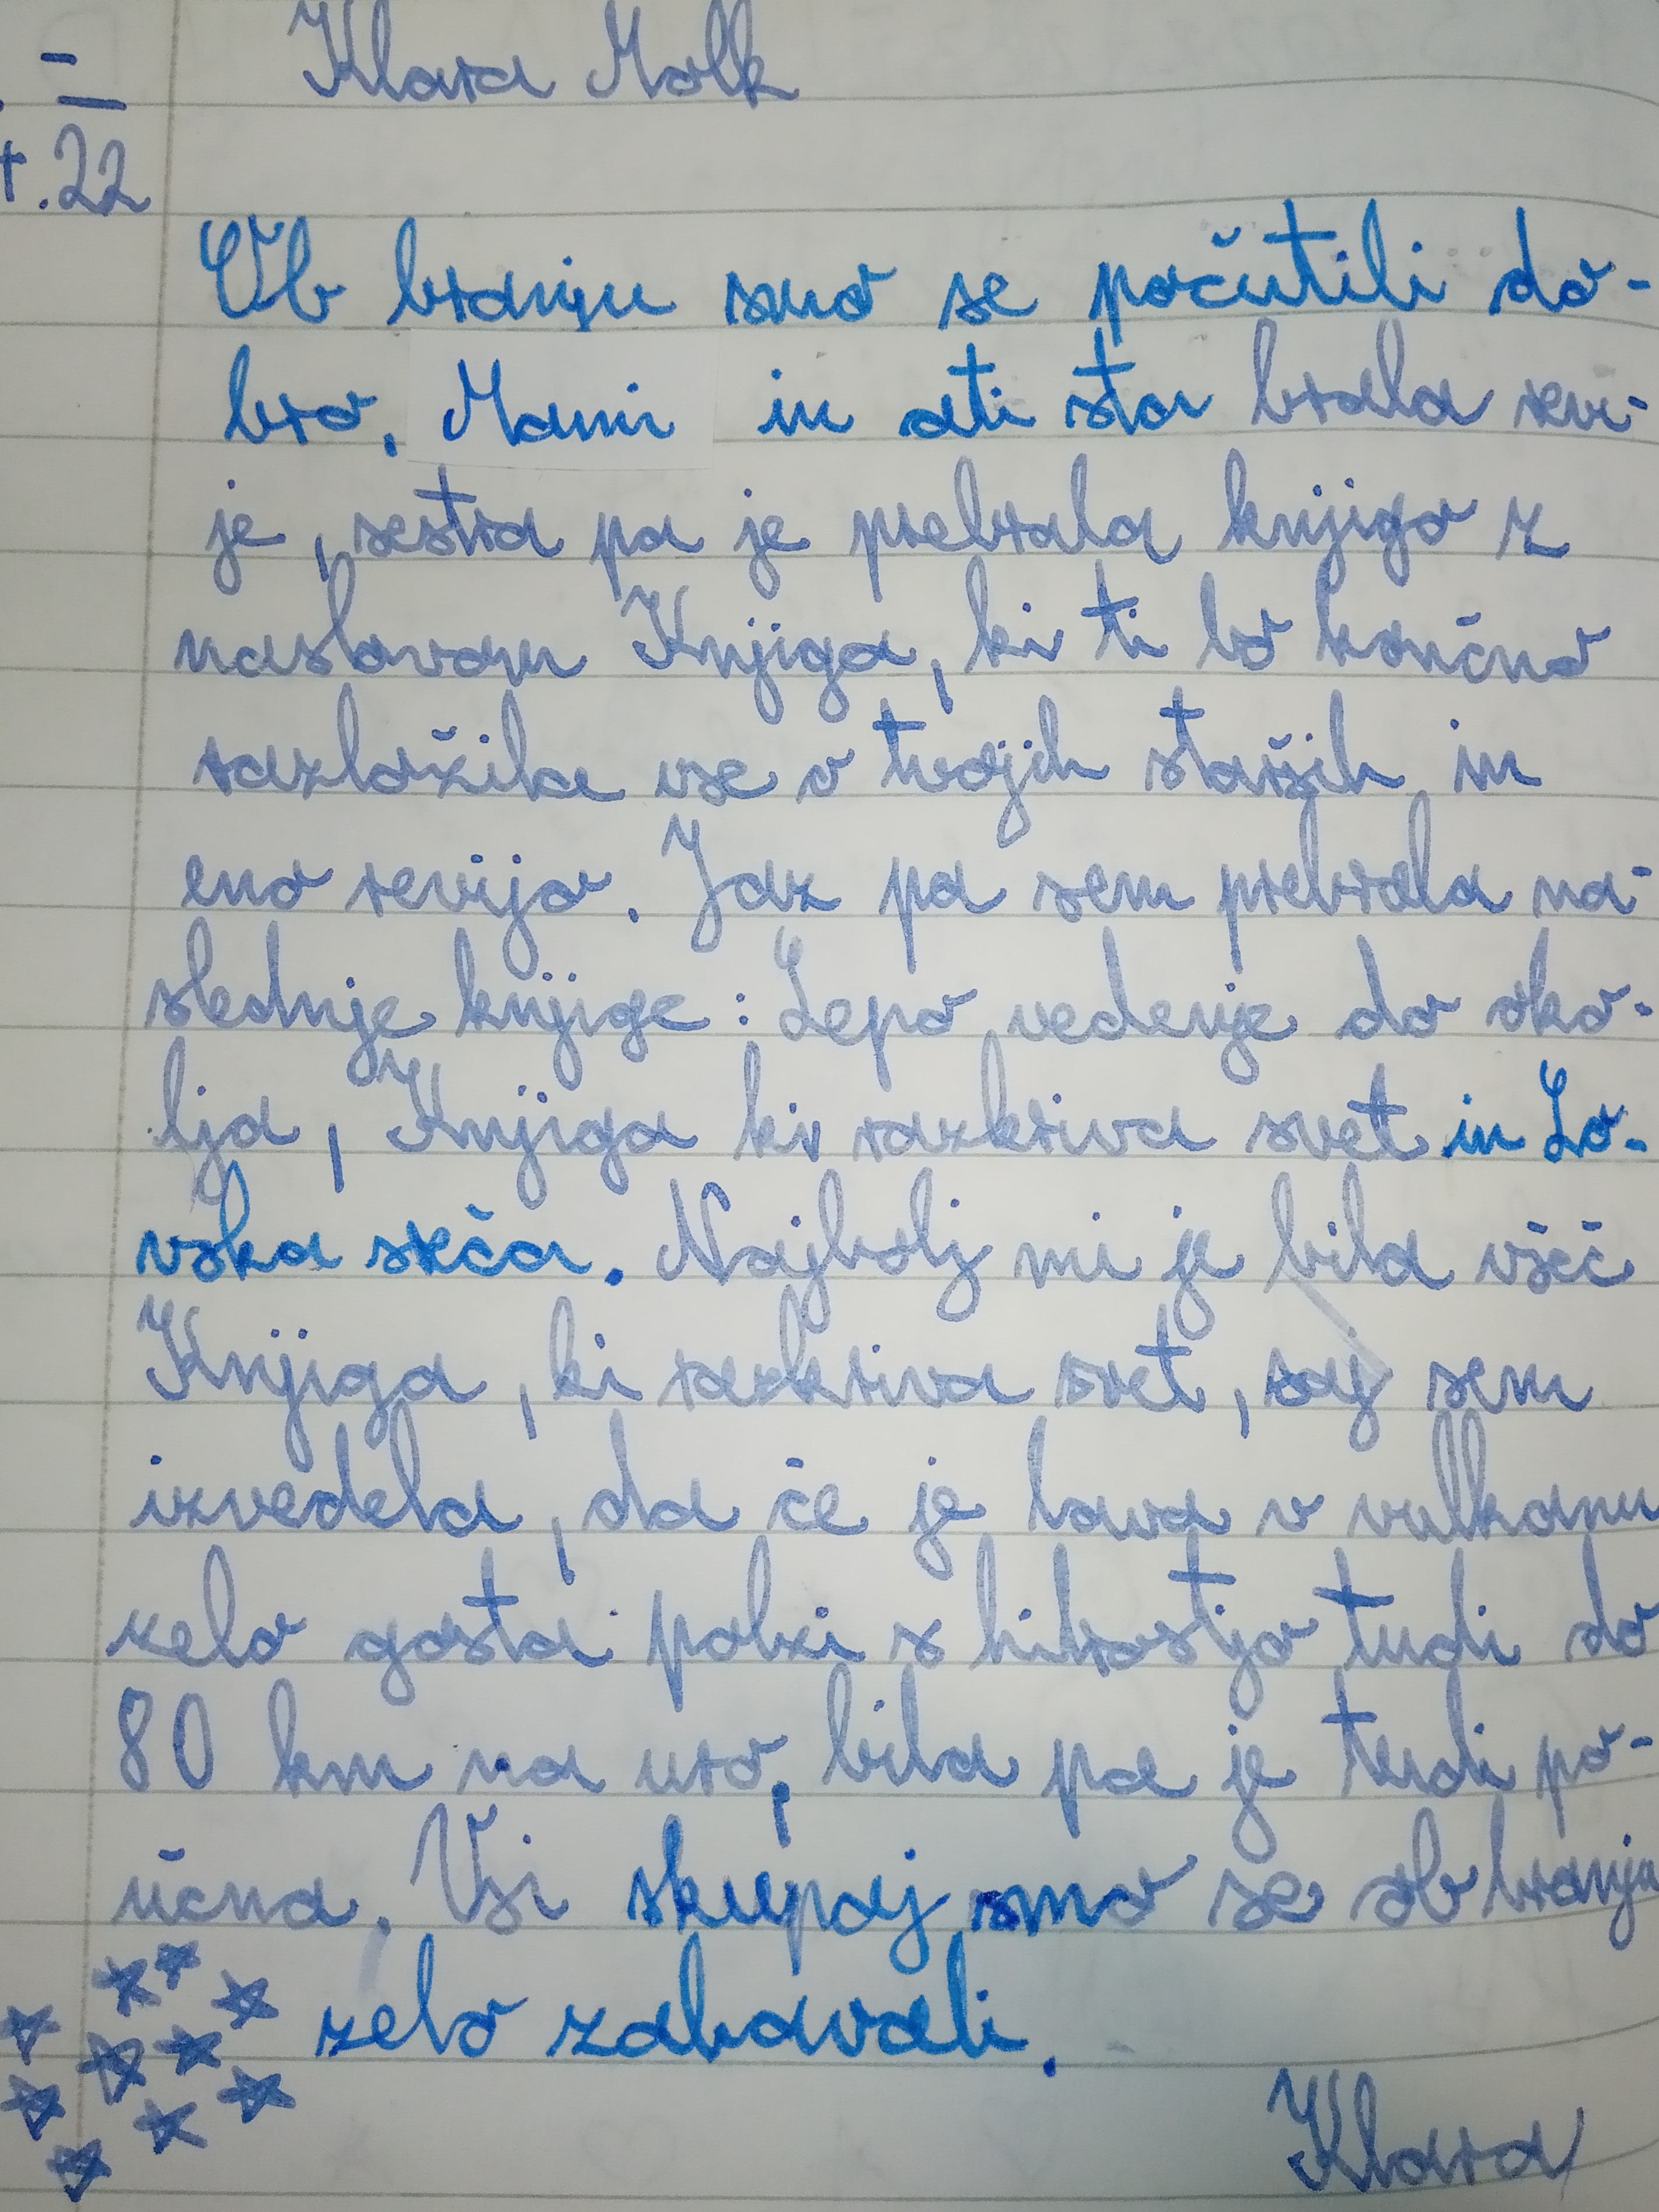 Klara Molk
t. 22
Ob branju smo se počutili do-
bro. Mami in ati sta brala revi-
je, sestra pa je prebrala knjigo z
naslovom Knjiga, ki ti bo končno
razložila vse o tvojih starših in
eno revijo. Jaz pa sem prebrala na-
slednje knjige: Lepo vedenje do oko-
lja, Knjiga ki razkriva svet in Lo-
vska sreča. Najbolj mi je bila všeč
Knjiga, ki razkriva svet, saj sem
izvedela, da če je lava v vulkanu
zelo gosta polzi s hitrostjo tudi do
80 km na uro, bila pa je tudi po-
učna. Vsi skupaj smo se ob branju
zelo zabavali.
Klara